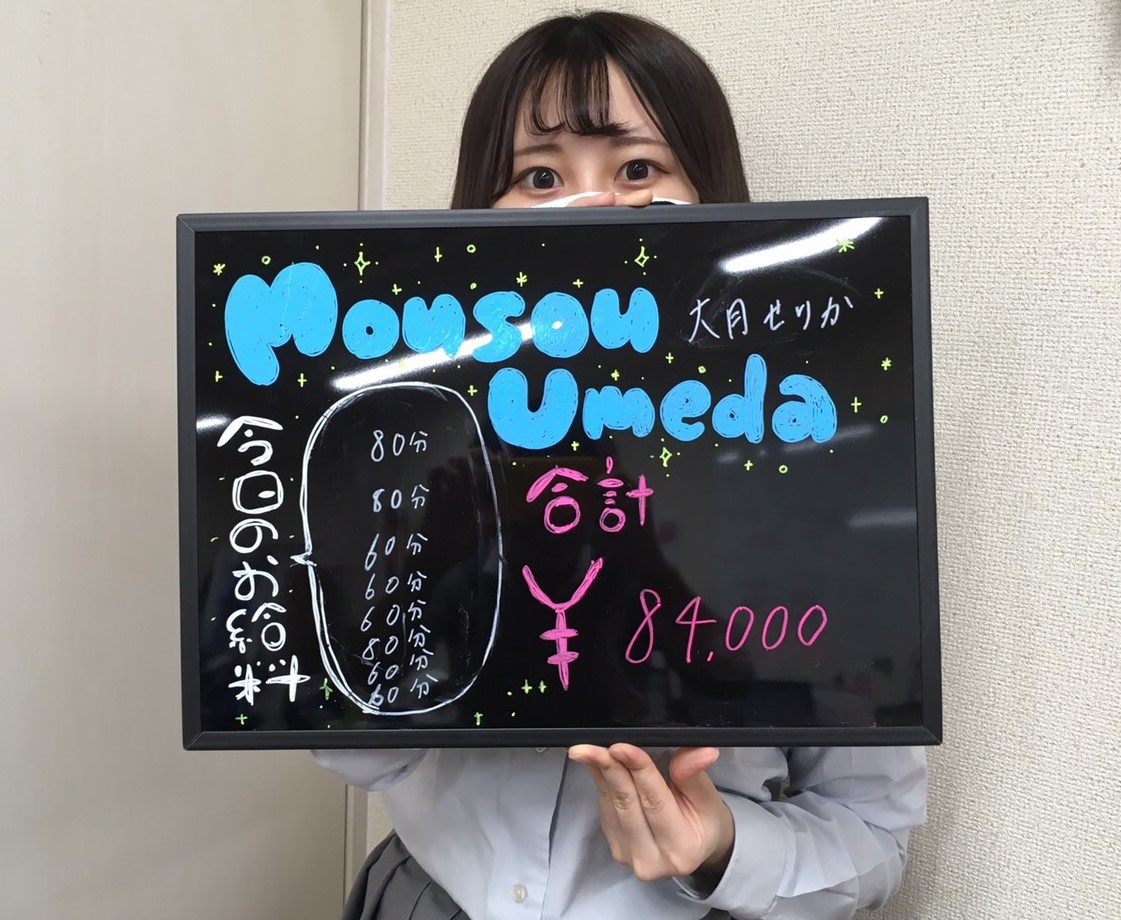 Mousou
大月せりか
Umeda
今日のお給料
80分
80分
60分
60分
60分
80分
60分
60分
合計
¥84,000